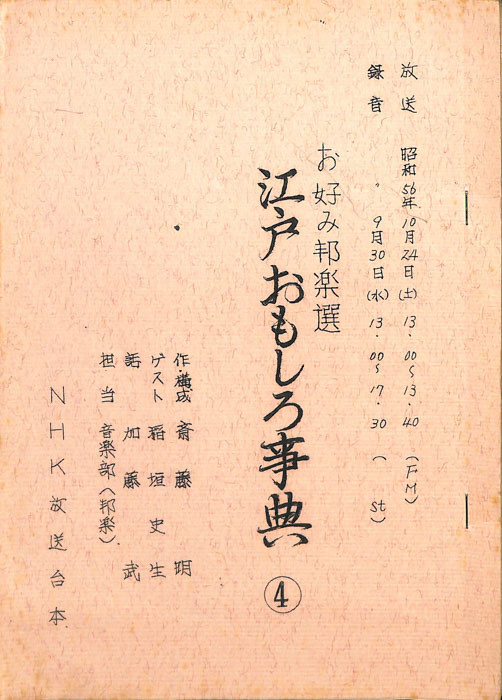 放送 昭和56年10月24日(土) 13.00〜13.40 (FM)
録音 〃 9月30日(水) 13.00〜17.30 ( st)
お好み邦楽選
江戸おもしろ事典 ④
作・構成 斎藤 明
ゲスト 稲垣史生
話 加藤 武
担当 音楽部(邦楽)
NHK放送台本